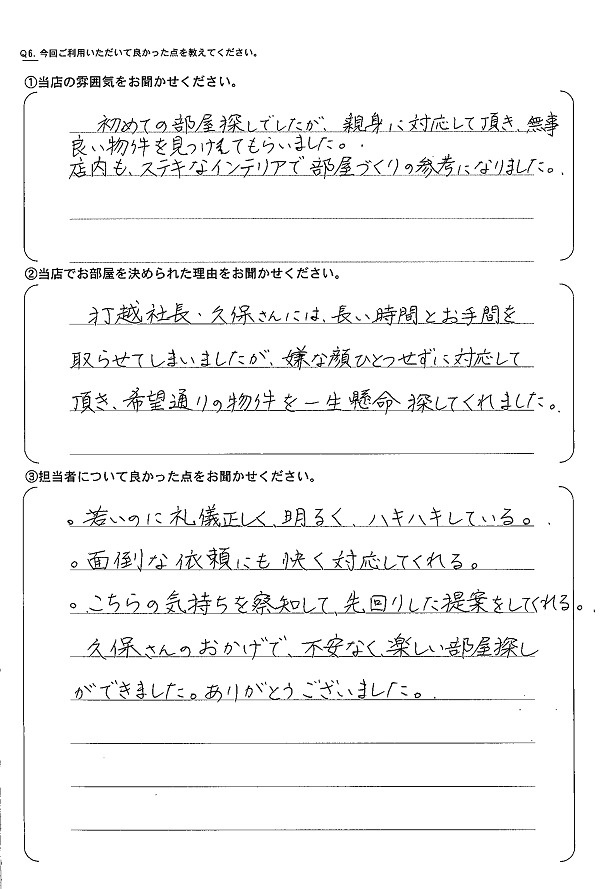 Q6. 今回ご利用いただいて良かった点を教えてください。
①当店の雰囲気をお聞かせください。
初めての部屋探しでしたが、親身に対応して頂き、無事
良い物件を見つけてもらいました。
店内も、ステキなインテリアで部屋づくりの参考になりました。
②当店でお部屋を決められた理由をお聞かせください。
打越社長・久保さんには、長い時間とお手間を
取らせてしまいましたが、嫌な顔ひとつせずに対応して
頂き、希望通りの物件を一生懸命探してくれました。
③担当者について良かった点をお聞かせください。
。若いのに礼儀正しく、明るく、ハキハキしている。
。面倒な依頼にも快く対応してくれる。
。こちらの気持ちを察知して、先回りした提案をしてくれる。
久保さんのおかげで、不安なく、楽しい部屋探し
ができました。ありがとうございました。